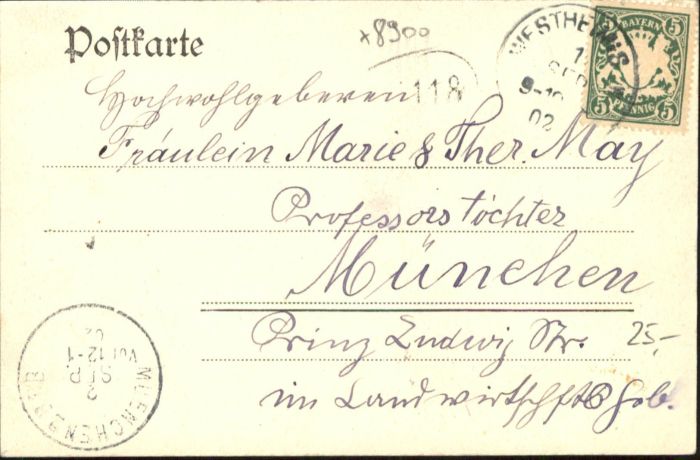 Postkarte
+8900
118
WESTHEIM
1
SEP
9-10
02
BAYERN
5 5
5 5
PFENNIG
Hochwohlgeboren
Fräulein Marie & Ther. May
Professorstöchter
München
Prinz Ludwig Str. 25,-
im Landwirtschftsgeb.
MUENCHEN
2
SEP.
Vor 12-1
02